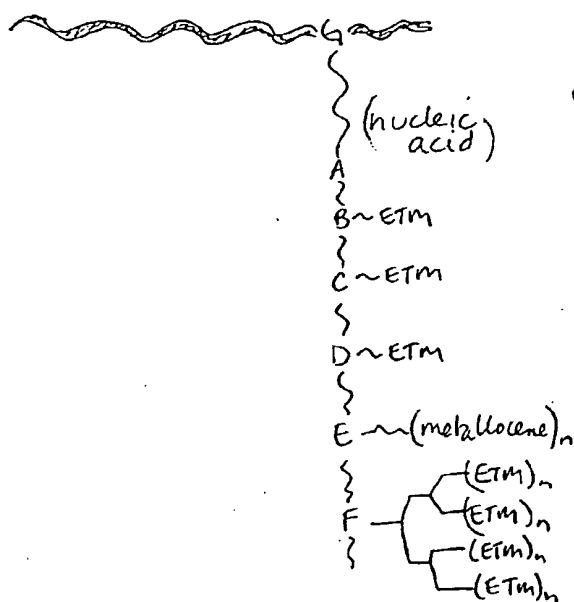 G
(nucleic
acid)
A
B~ETM
C~ETM
D~ETM
E~(metallocene)n
F
(ETM)n
(ETM)n
(ETM)n
(ETM)n